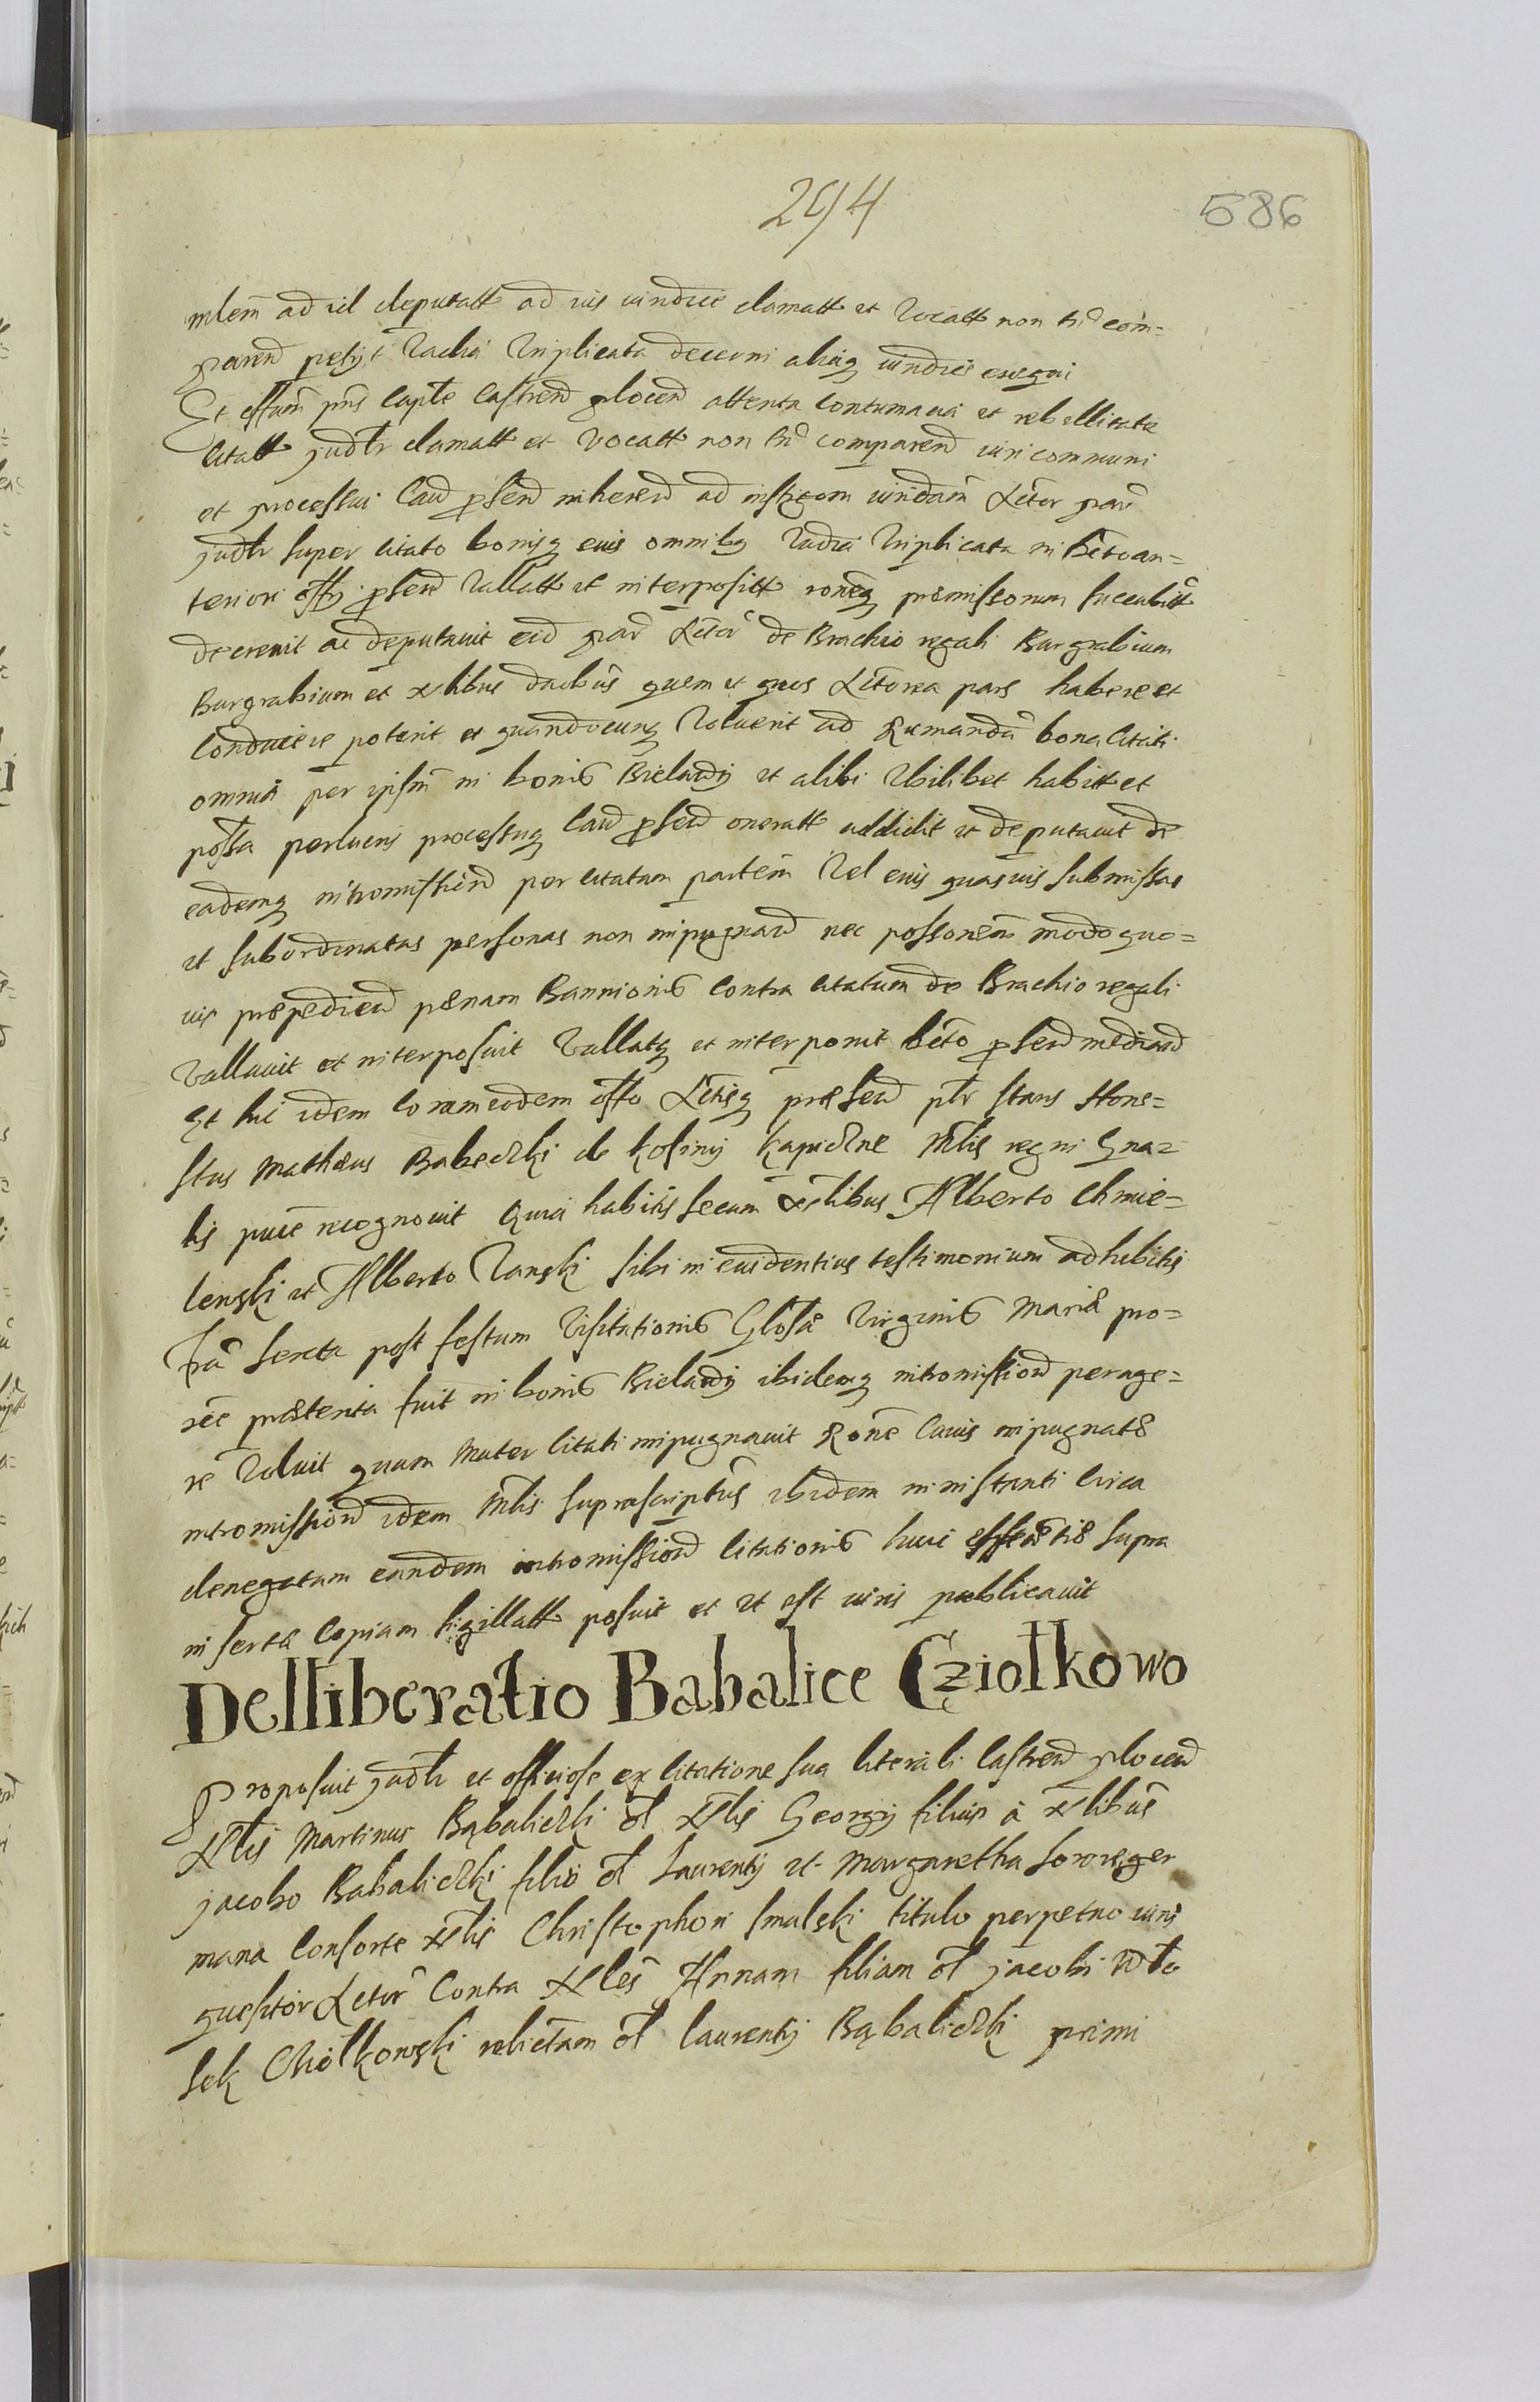 294
586
ad id deputatt ad iuis iuridice clamatt et vocatt non tn com=
parend petijt Vadia triplicata decerni aliaq iuridice exequi
Et offum pns Capte Castren plocen attenta contumacia et rebellitate
Citatt judtr clamatt et vocatt non tn comparend iuri communi
et processui Cau pnsen inherend ad Actor par
judtr super citato bonisq eius omnibq Vadia triplicata in Acto an=
teriori offij pnsen vallatt et interpositt præmissorum
decrevit ac deputavit eid par Actor de Brachio regali Burgrabium
Burgrabium et nobilibus duobus quem et quos Actorea pars habere et
conducere poterit et quandocunq voluerit ad bona Citati
omnia per ipsum in bonis Bielawy et alibi ubilibet habitt et
possa perlucris processuq Cau pnsen oneratt addidit et deputavit de
eademq intromissiend per citatam partem vel eius quasuis submissas
et subordinatas personas non impugnand nec possonem modo quo=
uis præpediend pænam Bannionis contra citatum de Brachio regali
vallavit et interposuit vallatq et interponit Acto pnsen mediand
Et hic idem coram eodem offo Actisq præsen ptr stans Hone=
stus Mathæus Babeczki de kosiny kapiczne Mtlis regni Gna=
lis puce recognovit Quia habitis secum nobilibus Alberto Chmie=
lenski et Alberto Vanski sibi in evidentius testimonium adhibitis
fra sexta post festum Visitationis Glosæ Virginis Mariæ pro=
xee præterita fuit in bonis Bielawy ibidemq intromissiond perage=
re voluit quam Mater Citati impugnavit Rone cuius impugnatæ
intromissiond idem Mtlis suprascriptus ibidem instanti circa
denegatam eandem intromissiond citationis huic effectiæ supra
insertæ Copiam sigillatt posuit et ut est iuris publicavit
Delliberatio Babalice Cziołkowo
Proposuit judtr et officiose ex citatione sua literali Castren plocen
Nbtis Martinus Bąbaliczki ol Nbtis Georgij filius à Nbtibus
jacobo Babaliczki filio ol Laurentij et Margaretha sorore ger
mana Consorte Nbtis Christophori smalski titulo perpetuo iuris
quesitor Actor Contra Nbtes Annam filiam ol jacobi
sek Cziołkowski relictam ol laurentij Bąbaliczki primi